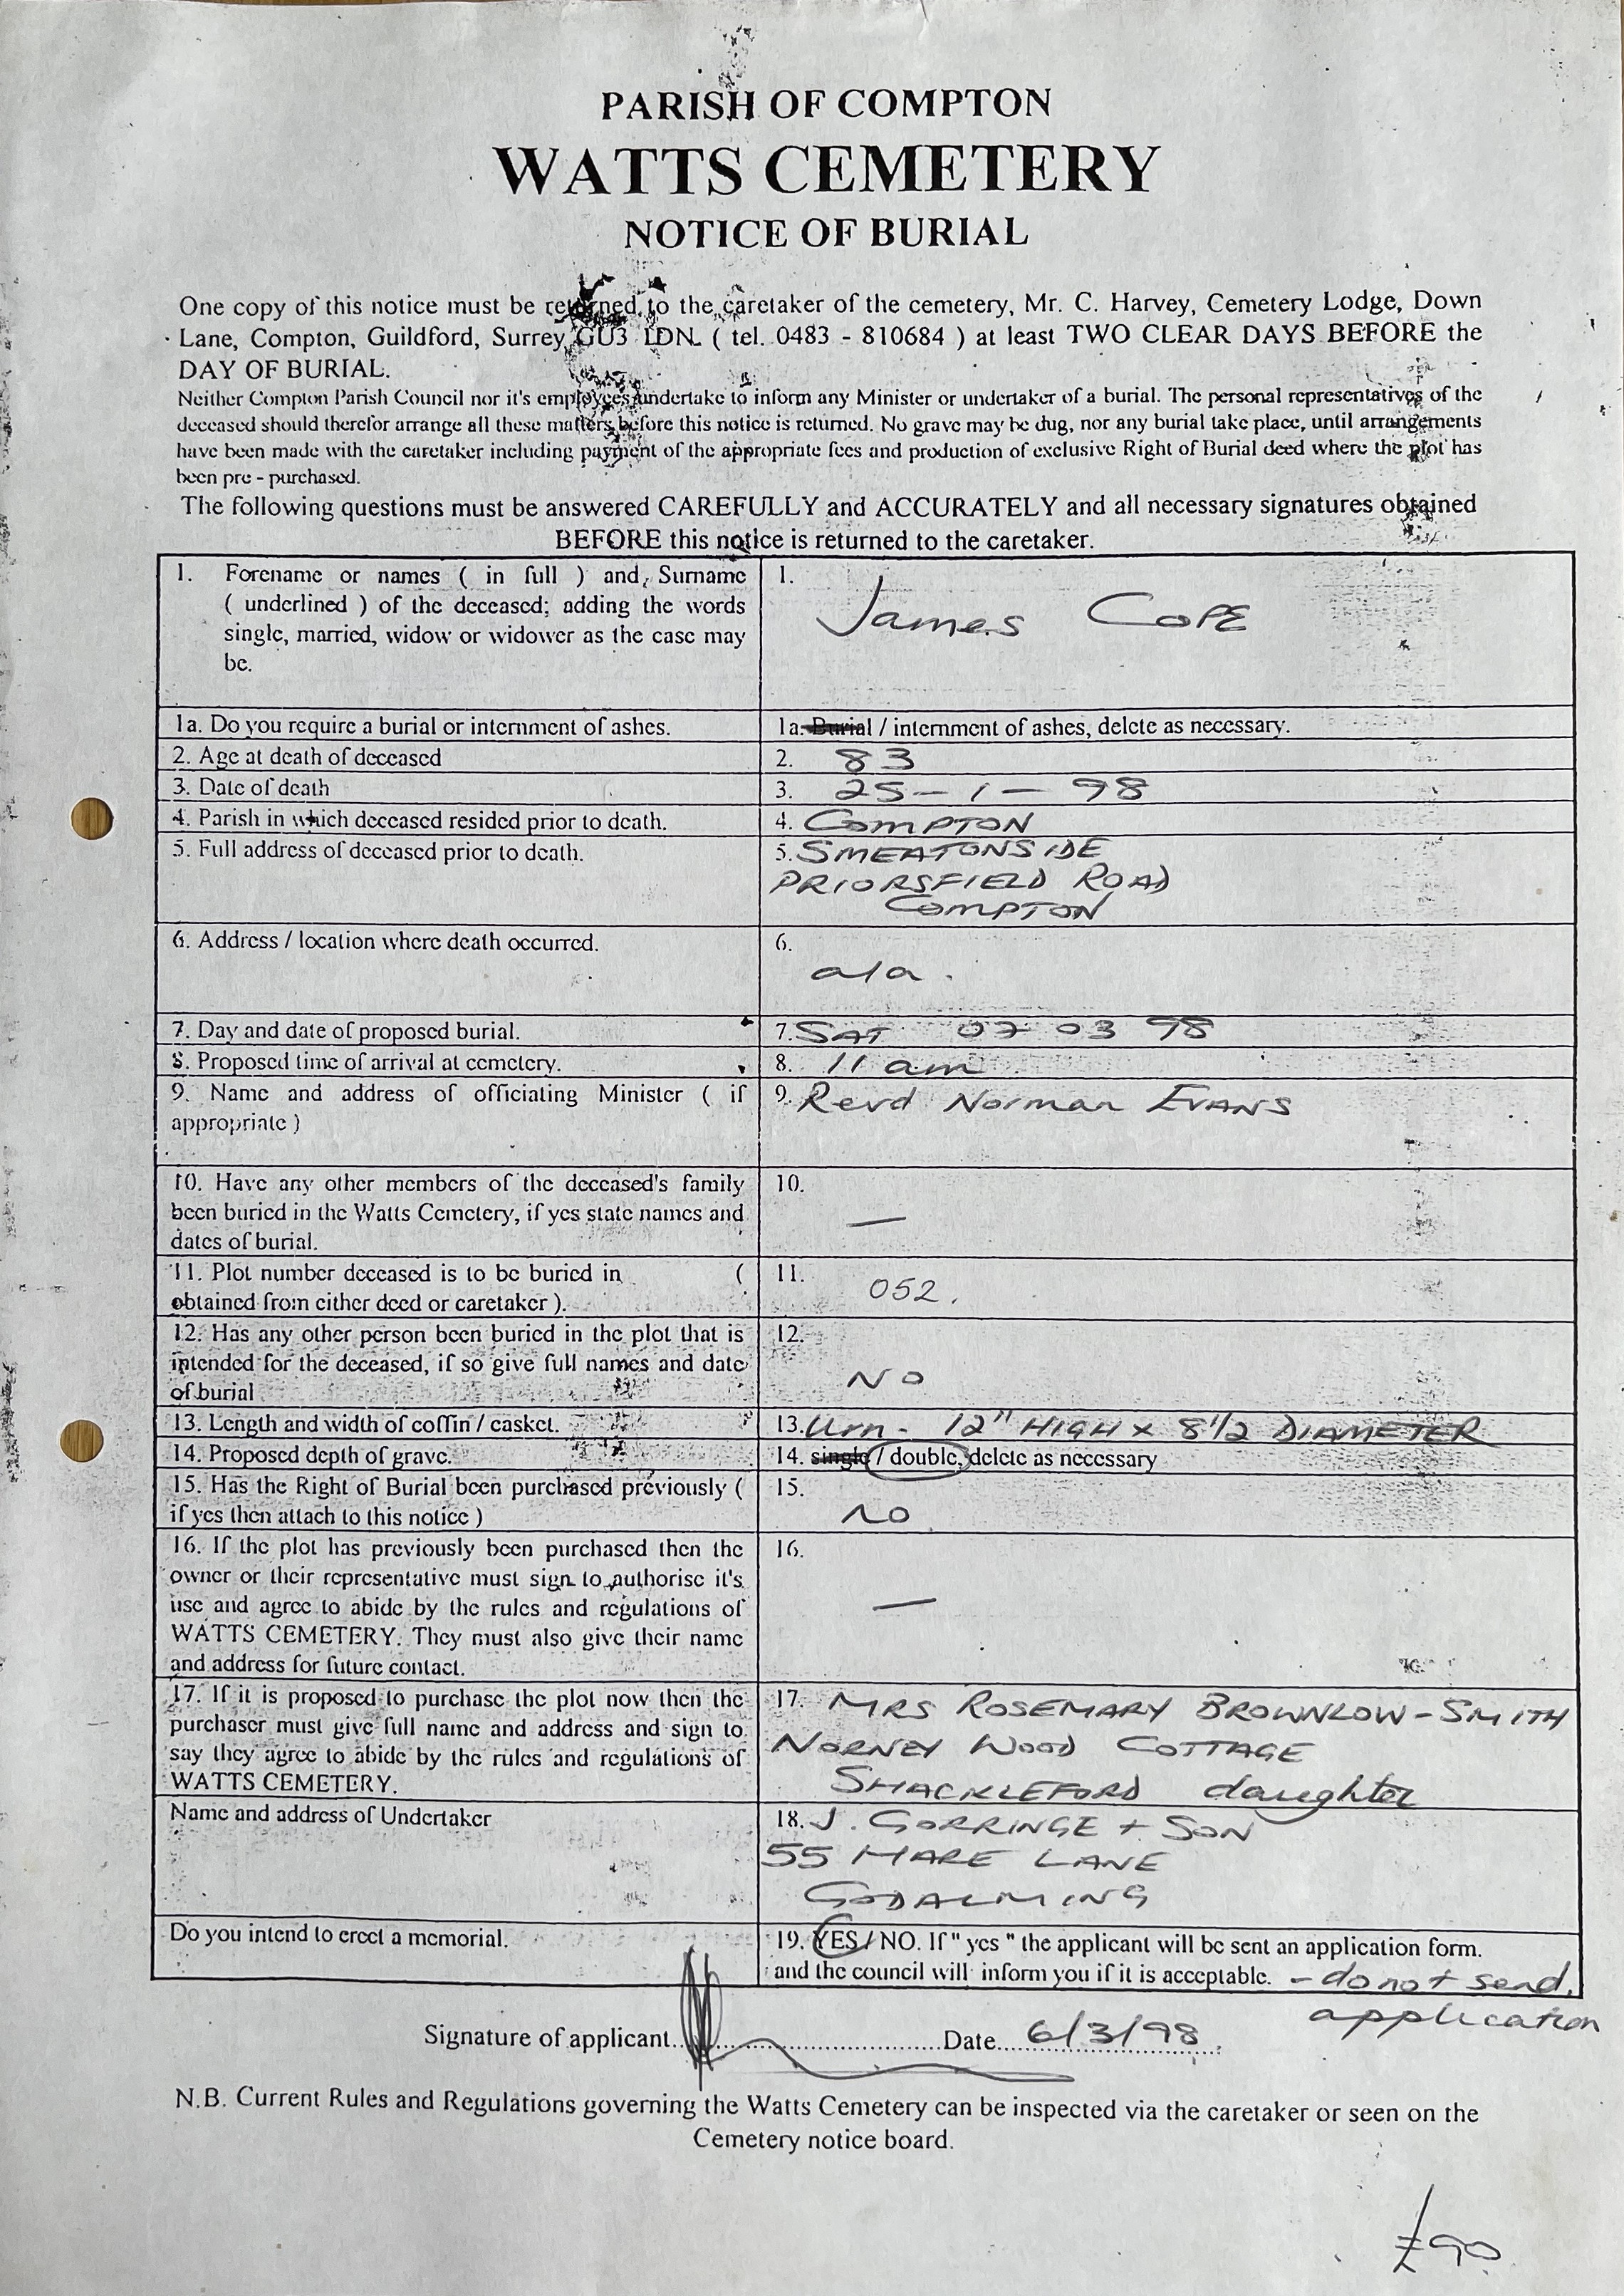 PARISH OF COMPTON
WATTS CEMETERY
NOTICE OF BURIAL
One copy of this notice must be returned to the caretaker of the cemetery, Mr. C. Harvey, Cemetery Lodge, Down
Lane, Compton, Guildford, Surrey GU3 1DN. ( tel. 0483 - 810684 ) at least TWO CLEAR DAYS BEFORE the
DAY OF BURIAL.
Neither Compton Parish Council nor it's employees undertake to inform any Minister or undertaker of a burial. The personal representatives of the
deceased should therefor arrange all these matters before this notice is returned. No grave may be dug, nor any burial take place, until arrangements
have been made with the caretaker including payment of the appropriate fees and production of exclusive Right of Burial deed where the plot has
been pre - purchased.
The following questions must be answered CAREFULLY and ACCURATELY and all necessary signatures obtained
BEFORE this notice is returned to the caretaker.
1. Forename or names ( in full ) and Surname
( underlined ) of the deceased; adding the words
single, married, widow or widower as the case may
be.
1.
James COPE
1a. Do you require a burial or internment of ashes.
1a. Burial / internment of ashes, delete as necessary.
2. Age at death of deceased
2. 83
3. Date of death
3. 25-1-98
4. Parish in which deceased resided prior to death.
4. COMPTON
5. Full address of deceased prior to death.
5. SMEATONSIDE
PRIORSFIELD ROAD
COMPTON
6. Address / location where death occurred.
6.
a/a.
7. Day and date of proposed burial.
7. SAT 07 03 98
8. Proposed time of arrival at cemetery.
8. 11 am
9. Name and address of officiating Minister ( if
appropriate )
9. Revd Norman EVANS
10. Have any other members of the deceased's family
been buried in the Watts Cemetery, if yes state names and
dates of burial.
10.
—
11. Plot number deceased is to be buried in (
obtained from either deed or caretaker ).
11.
052.
12. Has any other person been buried in the plot that is
intended for the deceased, if so give full names and date
of burial
12.
NO
13. Length and width of coffin / casket.
13. Urn - 12" HIGH x 8 1/2 DIAMETER
14. Proposed depth of grave.
14. single / double, delete as necessary
15. Has the Right of Burial been purchased previously (
if yes then attach to this notice )
15.
NO
16. If the plot has previously been purchased then the
owner or their representative must sign to authorise it's
use and agree to abide by the rules and regulations of
WATTS CEMETERY. They must also give their name
and address for future contact.
16.
—
17. If it is proposed to purchase the plot now then the
purchaser must give full name and address and sign to
say they agree to abide by the rules and regulations of
WATTS CEMETERY.
17. MRS ROSEMARY BROWNLOW-SMITH
NORNEY WOOD COTTAGE
SHACKLEFORD daughter
Name and address of Undertaker
18. J. GORRINGE + SON
55 HARE LANE
GODALMING
Do you intend to erect a memorial.
19. YES / NO. If " yes " the applicant will be sent an application form.
and the council will inform you if it is acceptable. - do not send
application
Signature of applicant.................................Date 6/3/98
N.B. Current Rules and Regulations governing the Watts Cemetery can be inspected via the caretaker or seen on the
Cemetery notice board.
£90